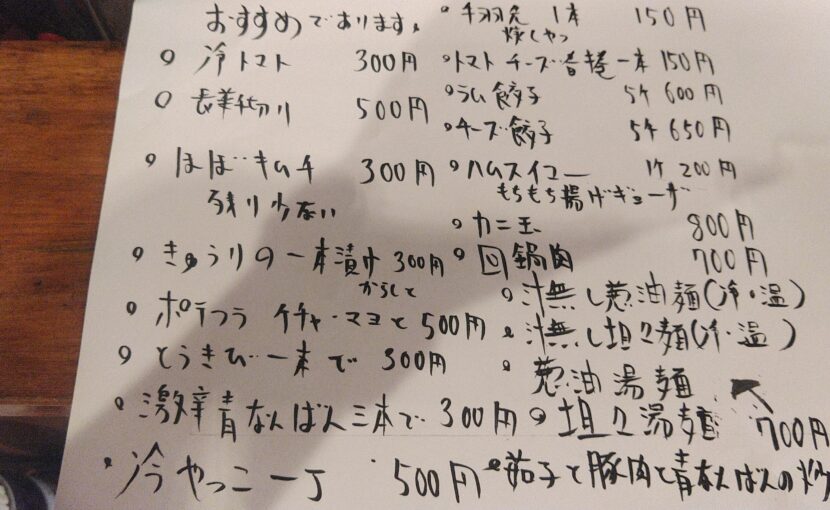 おすすめであります。
○ 冷トマト 300円
○ 長芋千切り 500円
○ ほぼキムチ 300円
残り少ない
○ きゅうりの一本漬け 300円
からしと
○ ポテフラ ケチャ・マヨと 500円
○ とうきび一本で 300円
○ 激辛青なんばん三本で 300円
○ 冷やっこ一丁 500円
○ 手羽先 1本 150円
○ トマトチーズ春捲一本 150円
○ ラム餃子 5ケ 600円
○ チーズ餃子 5ケ 650円
○ ハムスイコー 1ケ 200円
もちもち揚げギョーザ
○ カニ玉 800円
○ 回鍋肉 700円
○ 汁無し葱油麺(冷・温)
○ 汁無し坦々麺(冷・温)
○ 葱油湯麺
○ 坦々湯麺 700円
○ 茄子と豚肉と青なんばんの炒